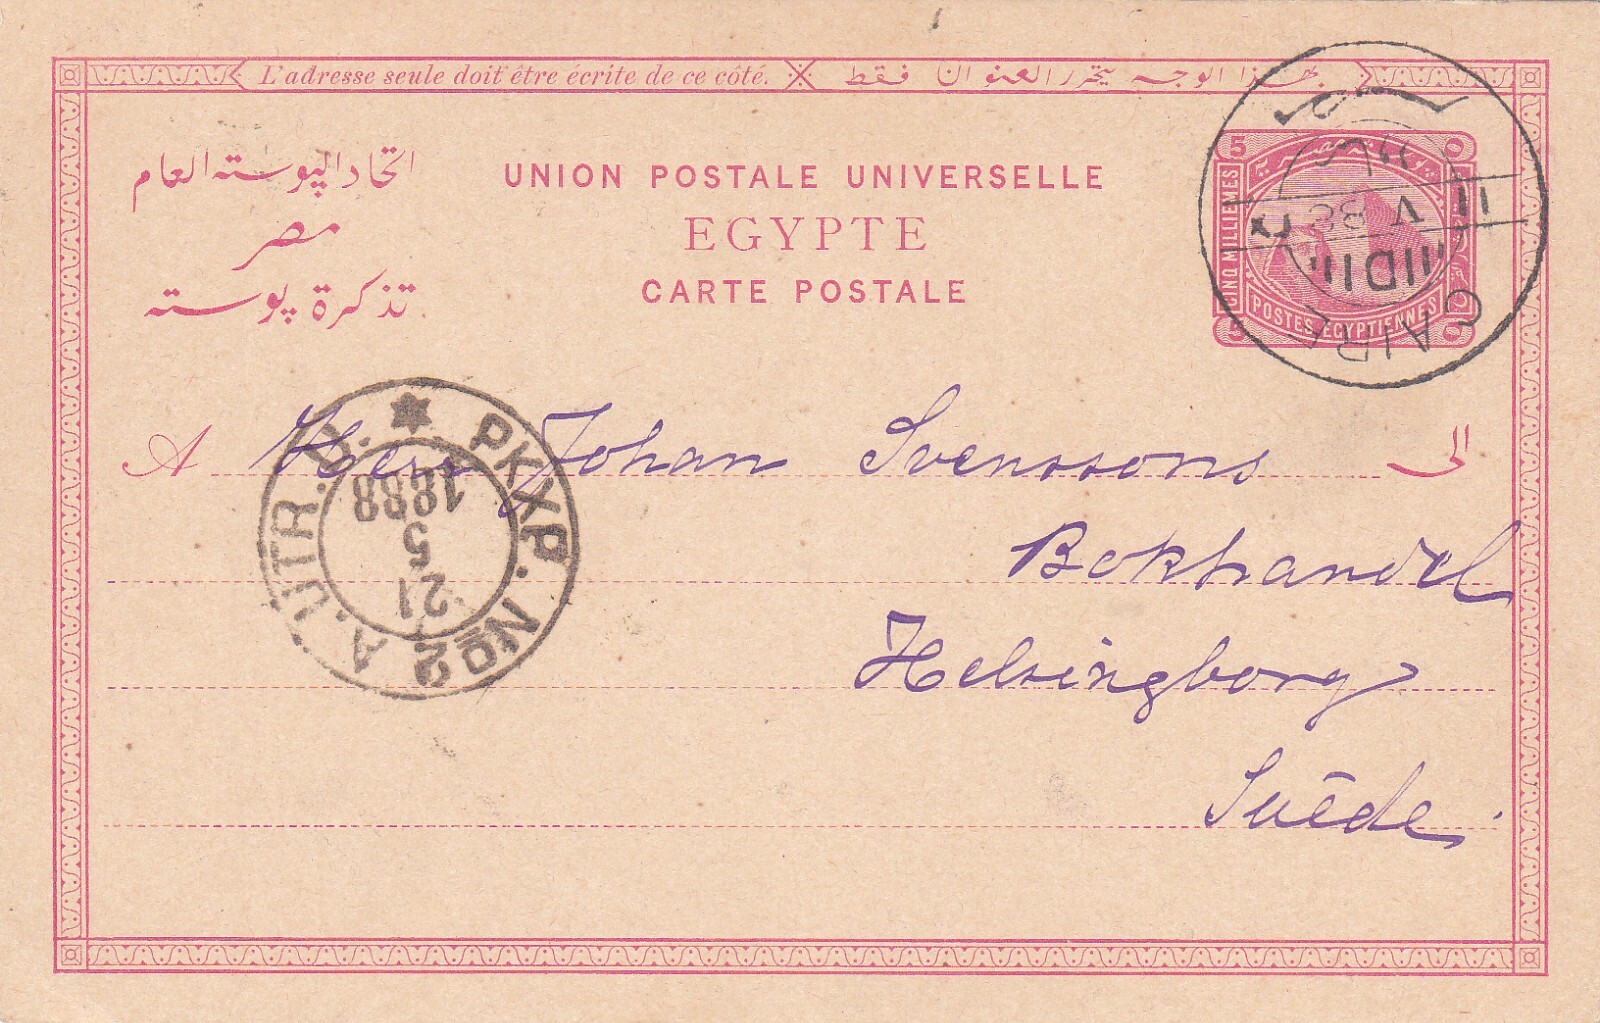 L'adresse seule doit être écrite de ce côté. بهذا الوجه يتحرر العنوان فقط
اتحاد البوسته العام
مصر
تذكرة بوسته
UNION POSTALE UNIVERSELLE
EGYPTE
CARTE POSTALE
5
CINQ MILLIEMES
POSTES EGYPTIENNES
5
CAIRE
"D"
11 V 88
PKXP. No 2 A. UTR. U.
21
5
1888
A Herr Johan Svenssons الى
Bokhandel
Helsingborg
Suède.